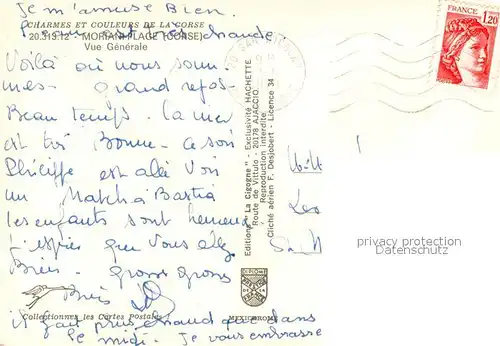 Je m'amuse Bien.
CHARMES ET COULEURS DE LA CORSE
20.319.12 - MORIANI-PLAGE (CORSE)
Vue Générale
chaude.
Voilà où nous som-
mes - grand repos
Beau temps. la mer
est très Bonne - ce soir
Philippe est allé voir
un Match à Bastia
les enfants sont heureux
J'espère que vous allez
Bien - gross gross
Bises
Collectionnez les Cartes Postales
il fait plus chaud que dans
le midi. Je vous embrasse
Editions "La Cigogne" - Exclusivité HACHETTE
Route de Vittulo - 20178 AJACCIO
Reproduction interdite
Cliché aérien F. Desjobert - Licence 34
MEXICHROME
FRANCE
1,20
privacy protection
Datenschutz